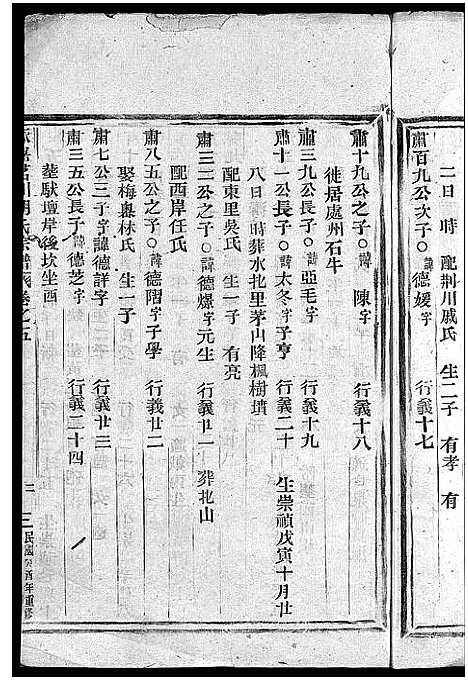 二日時 配荆川戚氏 生二子 有孝 有
肅百九公次子○諱德媛字 行義十七
肅十九公之子○諱 陳字 行義十八
徙居處州石牛
肅三九公長子○諱亞毛字 行義十九
肅十一公長子○諱太冬字子亨 行義二十 生崇禎戊寅十月廿
八日 時葬水北里茅山降楓樹墳
配東里吳氏 生一子 有亮
肅三二公之子○諱德爆字元生 行義廿一 葬北山
配西岸任氏
肅八五公之子○諱德熠字子學 行義廿二
娶梅嶴林氏 生一子
肅七公三子字諱德詳字 行義廿三
肅三五公長子○諱德芝字 行義二十四
塟馱壇岸後坟坐西
氏宗譜 卷之五
三 民國癸酉年重修